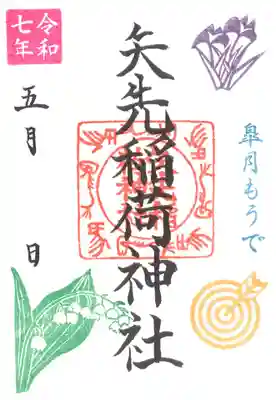 皐月もうで
矢先稲荷神社
令和
七年
五月 日